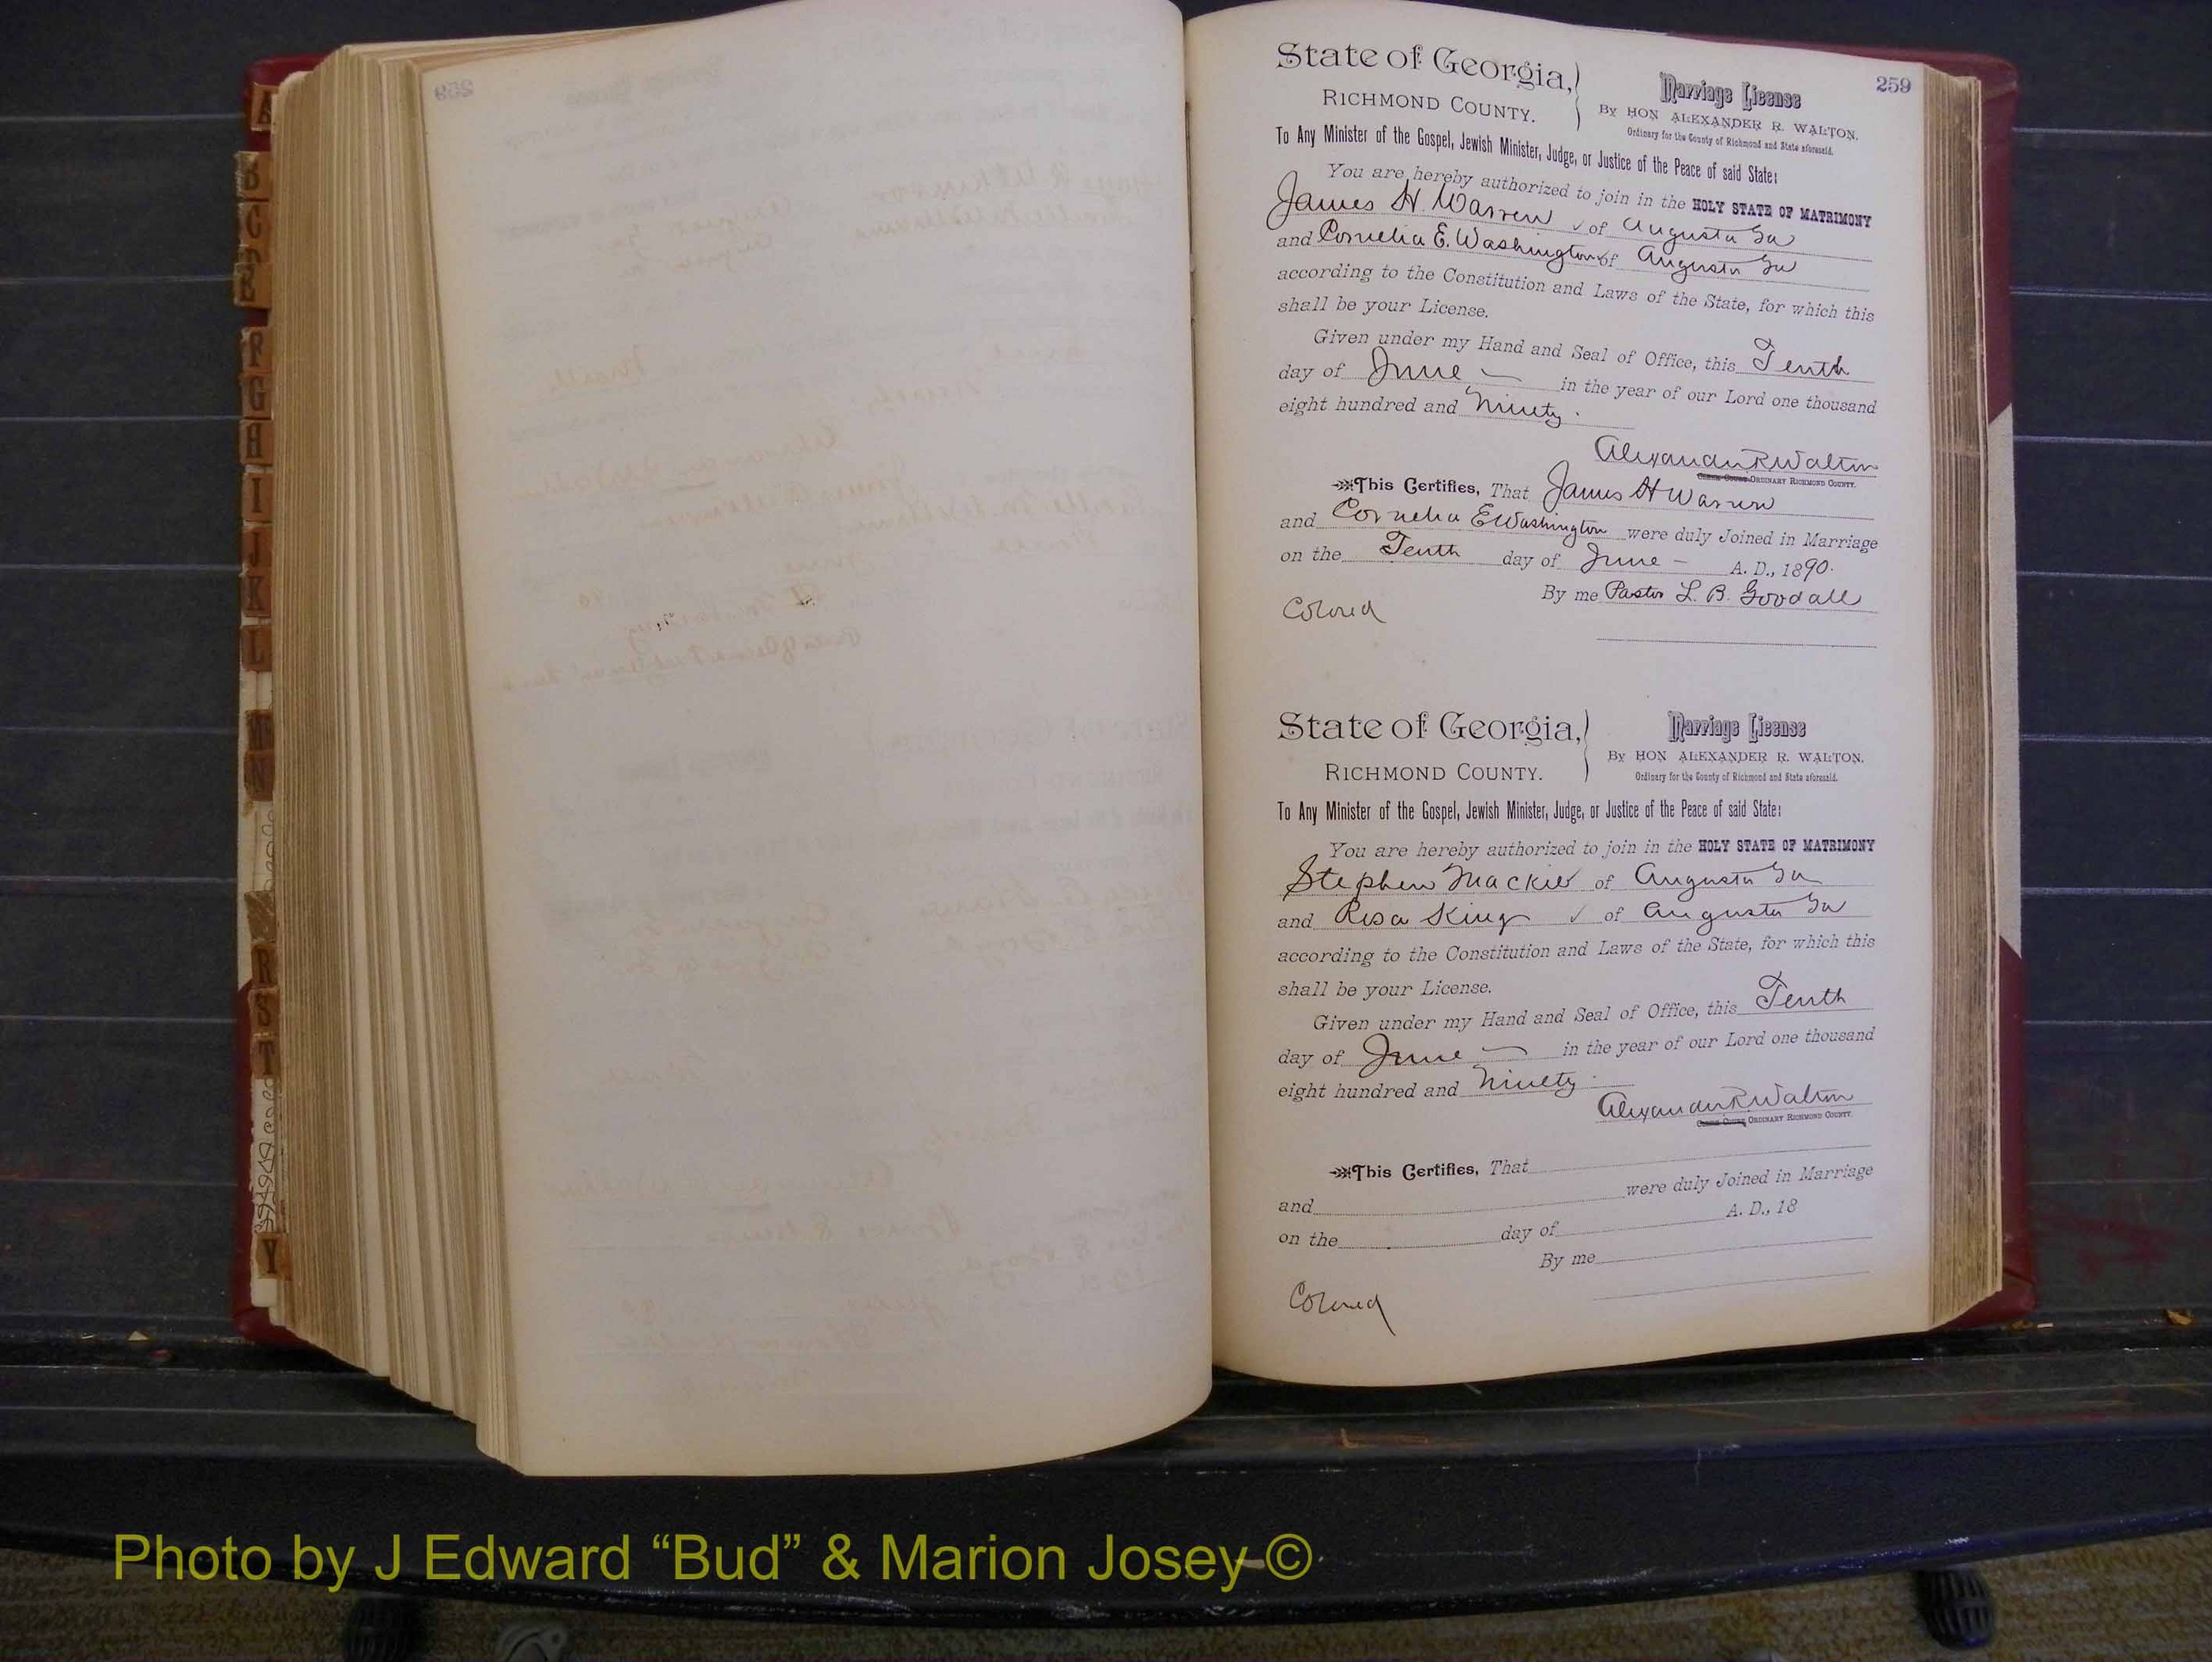 259
State of Georgia,
RICHMOND COUNTY.
Marriage License
By HON ALEXANDER R. WALTON.
Ordinary for the County of Richmond and State aforesaid.
To Any Minister of the Gospel, Jewish Minister, Judge, or Justice of the Peace of said State:
You are hereby authorized to join in the HOLY STATE OF MATRIMONY
James H. Warren ✓ of Augusta Ga
and Cornelia E. Washington of Augusta Ga
according to the Constitution and Laws of the State, for which this
shall be your License.
Given under my Hand and Seal of Office, this Tenth
day of June in the year of our Lord one thousand
eight hundred and Ninety.
Alexander R Walton
Clerk Court ORDINARY RICHMOND COUNTY.
This Certifies, That James H Warren
and Cornelia E Washington were duly Joined in Marriage
on the Tenth day of June - A. D., 1890.
By me Pastor L. B. Goodall
Colored
State of Georgia,
RICHMOND COUNTY.
Marriage License
By HON ALEXANDER R. WALTON.
Ordinary for the County of Richmond and State aforesaid.
To Any Minister of the Gospel, Jewish Minister, Judge, or Justice of the Peace of said State:
You are hereby authorized to join in the HOLY STATE OF MATRIMONY
Stephen Mackie of Augusta Ga
and Rosa King ✓ of Augusta Ga
according to the Constitution and Laws of the State, for which this
shall be your License.
Given under my Hand and Seal of Office, this Tenth
day of June in the year of our Lord one thousand
eight hundred and Ninety.
Alexander R Walton
Clerk Court ORDINARY RICHMOND COUNTY.
This Certifies, That
and were duly Joined in Marriage
on the day of A. D., 18
By me
Colored
B
C
F
G
H
I
J
K
L
M
N
R
S
T
Y
Photo by J Edward “Bud” & Marion Josey ©